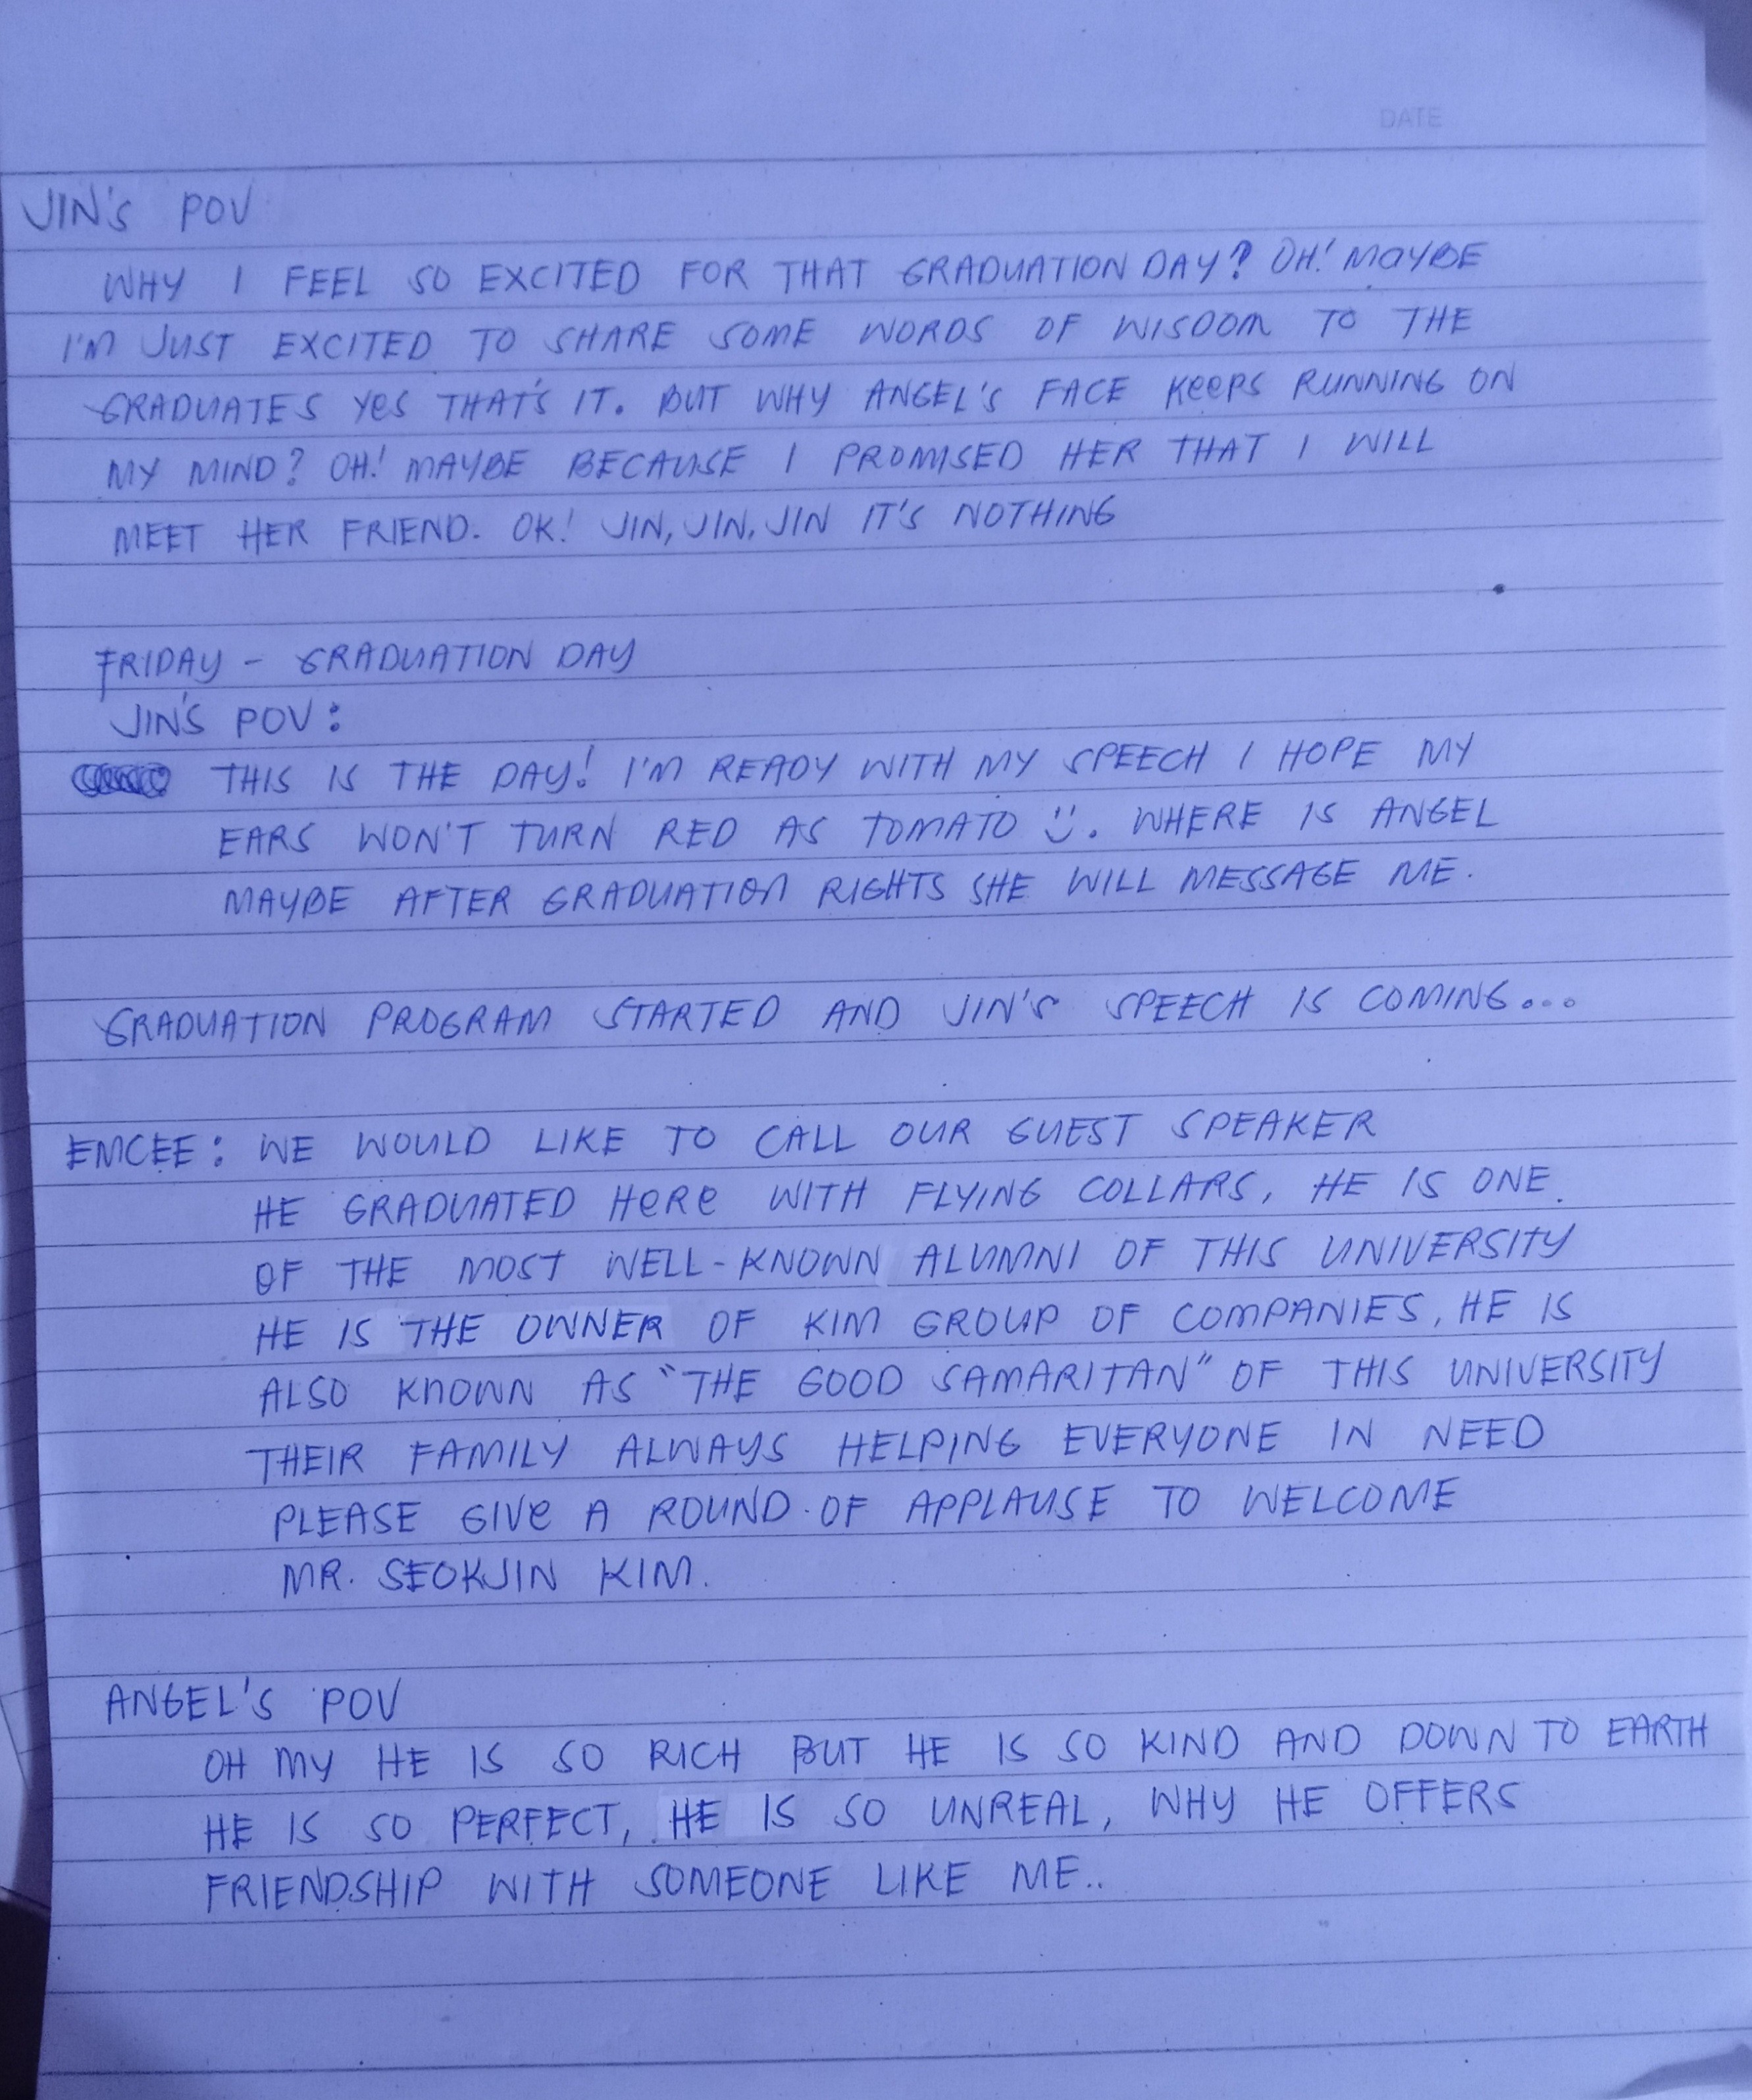 DATE
JIN'S POV
WHY I FEEL SO EXCITED FOR THAT GRADUATION DAY? OH! MAYBE
I'M JUST EXCITED TO SHARE SOME WORDS OF WISDOM TO THE
GRADUATES YES THAT'S IT. BUT WHY ANGEL'S FACE KEEPS RUNNING ON
MY MIND? OH! MAYBE BECAUSE I PROMISED HER THAT I WILL
MEET HER FRIEND. OK! JIN, JIN, JIN IT'S NOTHING
FRIDAY - GRADUATION DAY
JIN'S POV:
THIS IS THE DAY! I'M READY WITH MY SPEECH I HOPE MY
EARS WON'T TURN RED AS TOMATO Ü. WHERE IS ANGEL
MAYBE AFTER GRADUATION RIGHTS SHE WILL MESSAGE ME.
GRADUATION PROGRAM STARTED AND JIN'S SPEECH IS COMING...
EMCEE: WE WOULD LIKE TO CALL OUR GUEST SPEAKER
HE GRADUATED HERE WITH FLYING COLLARS, HE IS ONE.
OF THE MOST WELL-KNOWN ALUMNI OF THIS UNIVERSITY
HE IS THE OWNER OF KIM GROUP OF COMPANIES, HE IS
ALSO KNOWN AS "THE GOOD SAMARITAN" OF THIS UNIVERSITY
THEIR FAMILY ALWAYS HELPING EVERYONE IN NEED
PLEASE GIVE A ROUND OF APPLAUSE TO WELCOME
MR. SEOKJIN KIM.
ANGEL'S POV
OH MY HE IS SO RICH BUT HE IS SO KIND AND DOWN TO EARTH
HE IS SO PERFECT, HE IS SO UNREAL, WHY HE OFFERS
FRIENDSHIP WITH SOMEONE LIKE ME..